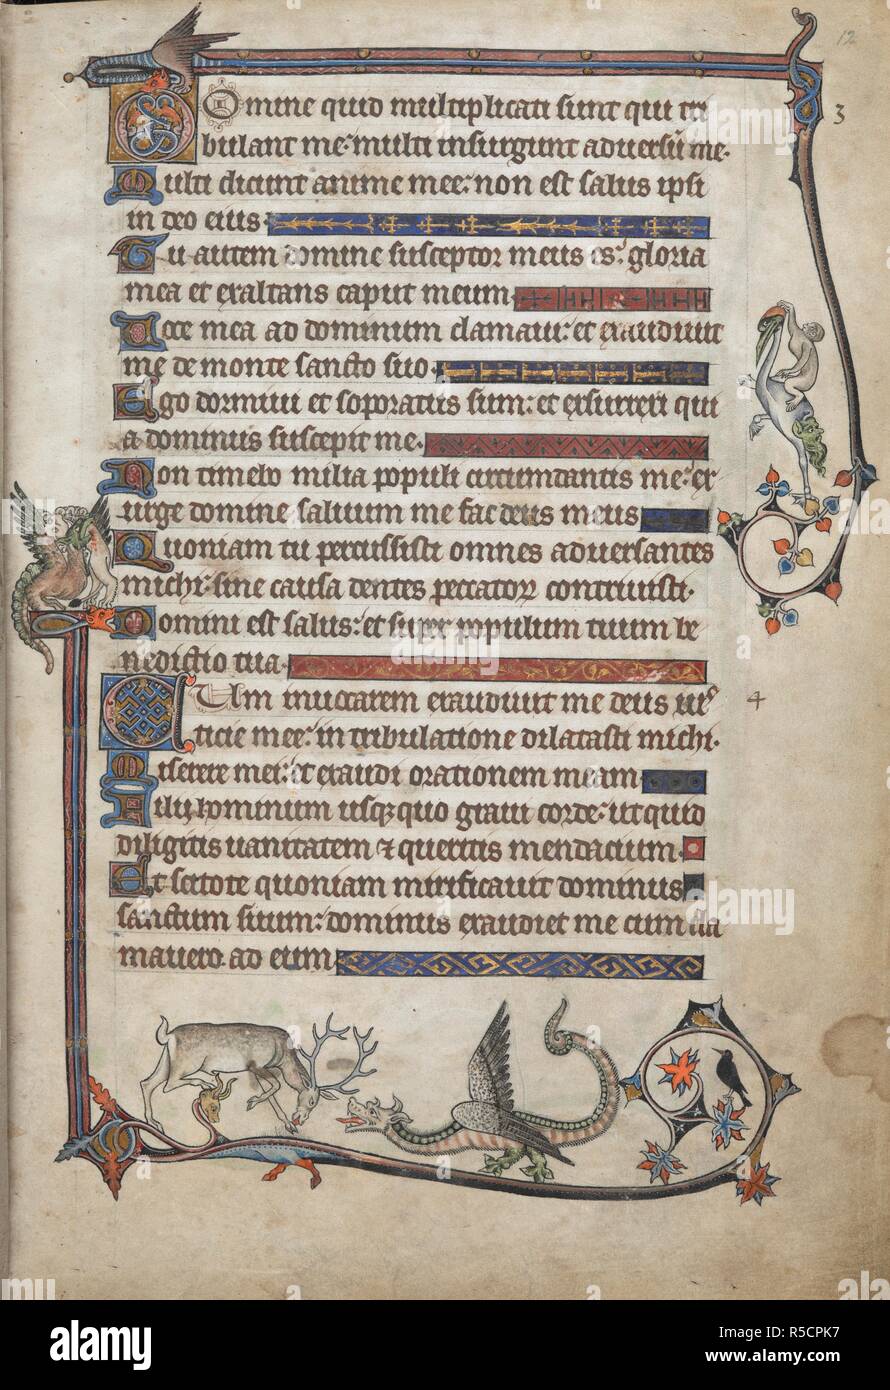 12
Domine quid multiplicati sunt qui tri
3
bulant me: multi insurgunt adversū me.
Multi dicunt anime mee: non est salus ipsi
in deo eius
Tu autem domine susceptor meus es: gloria
mea et exaltans caput meum
Voce mea ad dominum clamavi: et exaudivit
me de monte sancto suo
Ego dormivi et soporatus sum: et exsurrexi qui
a dominus suscepit me.
Non timebo milia populi circumdantis me: ex
urge domine salvum me fac deus meus
Quoniam tu percussisti omnes adversantes
michi sine causa dentes peccatoꝝ contrivisti.
Domini est salus: et super populum tuum be
nedictio tua
Cum invocarem exaudivit me deus ius
4
ticie mee: in tribulatione dilatasti michi.
Miserere mei: et exaudi orationem meam
Filii hominum usqꝫ quo gravi corde: ut quid
diligitis vanitatem ⁊ queritis mendacium.
Et scitote quoniam mirificavit dominus
sanctum suum: dominus exaudiet me cum cla
mavero ad eum
alamy
Image ID: R5CPK7
www.alamy.com